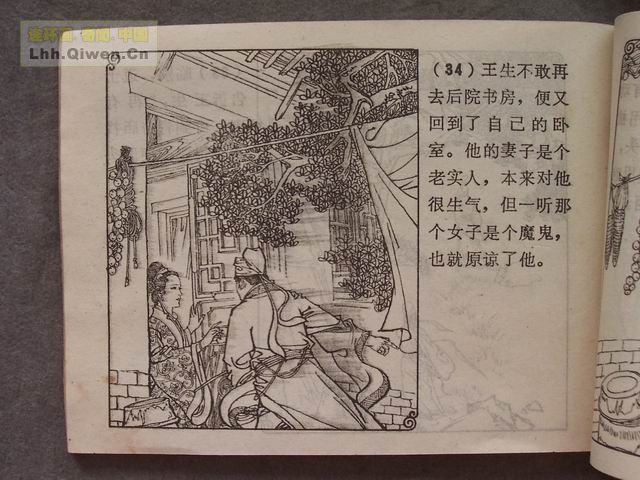 连环画.奇闻.中国
Lhh.Qiwen.Cn
（34）王生不敢再
去后院书房，便又
回到了自己的卧
室。他的妻子是个
老实人，本来对他
很生气，但一听那
个女子是个魔鬼，
也就原谅了他。